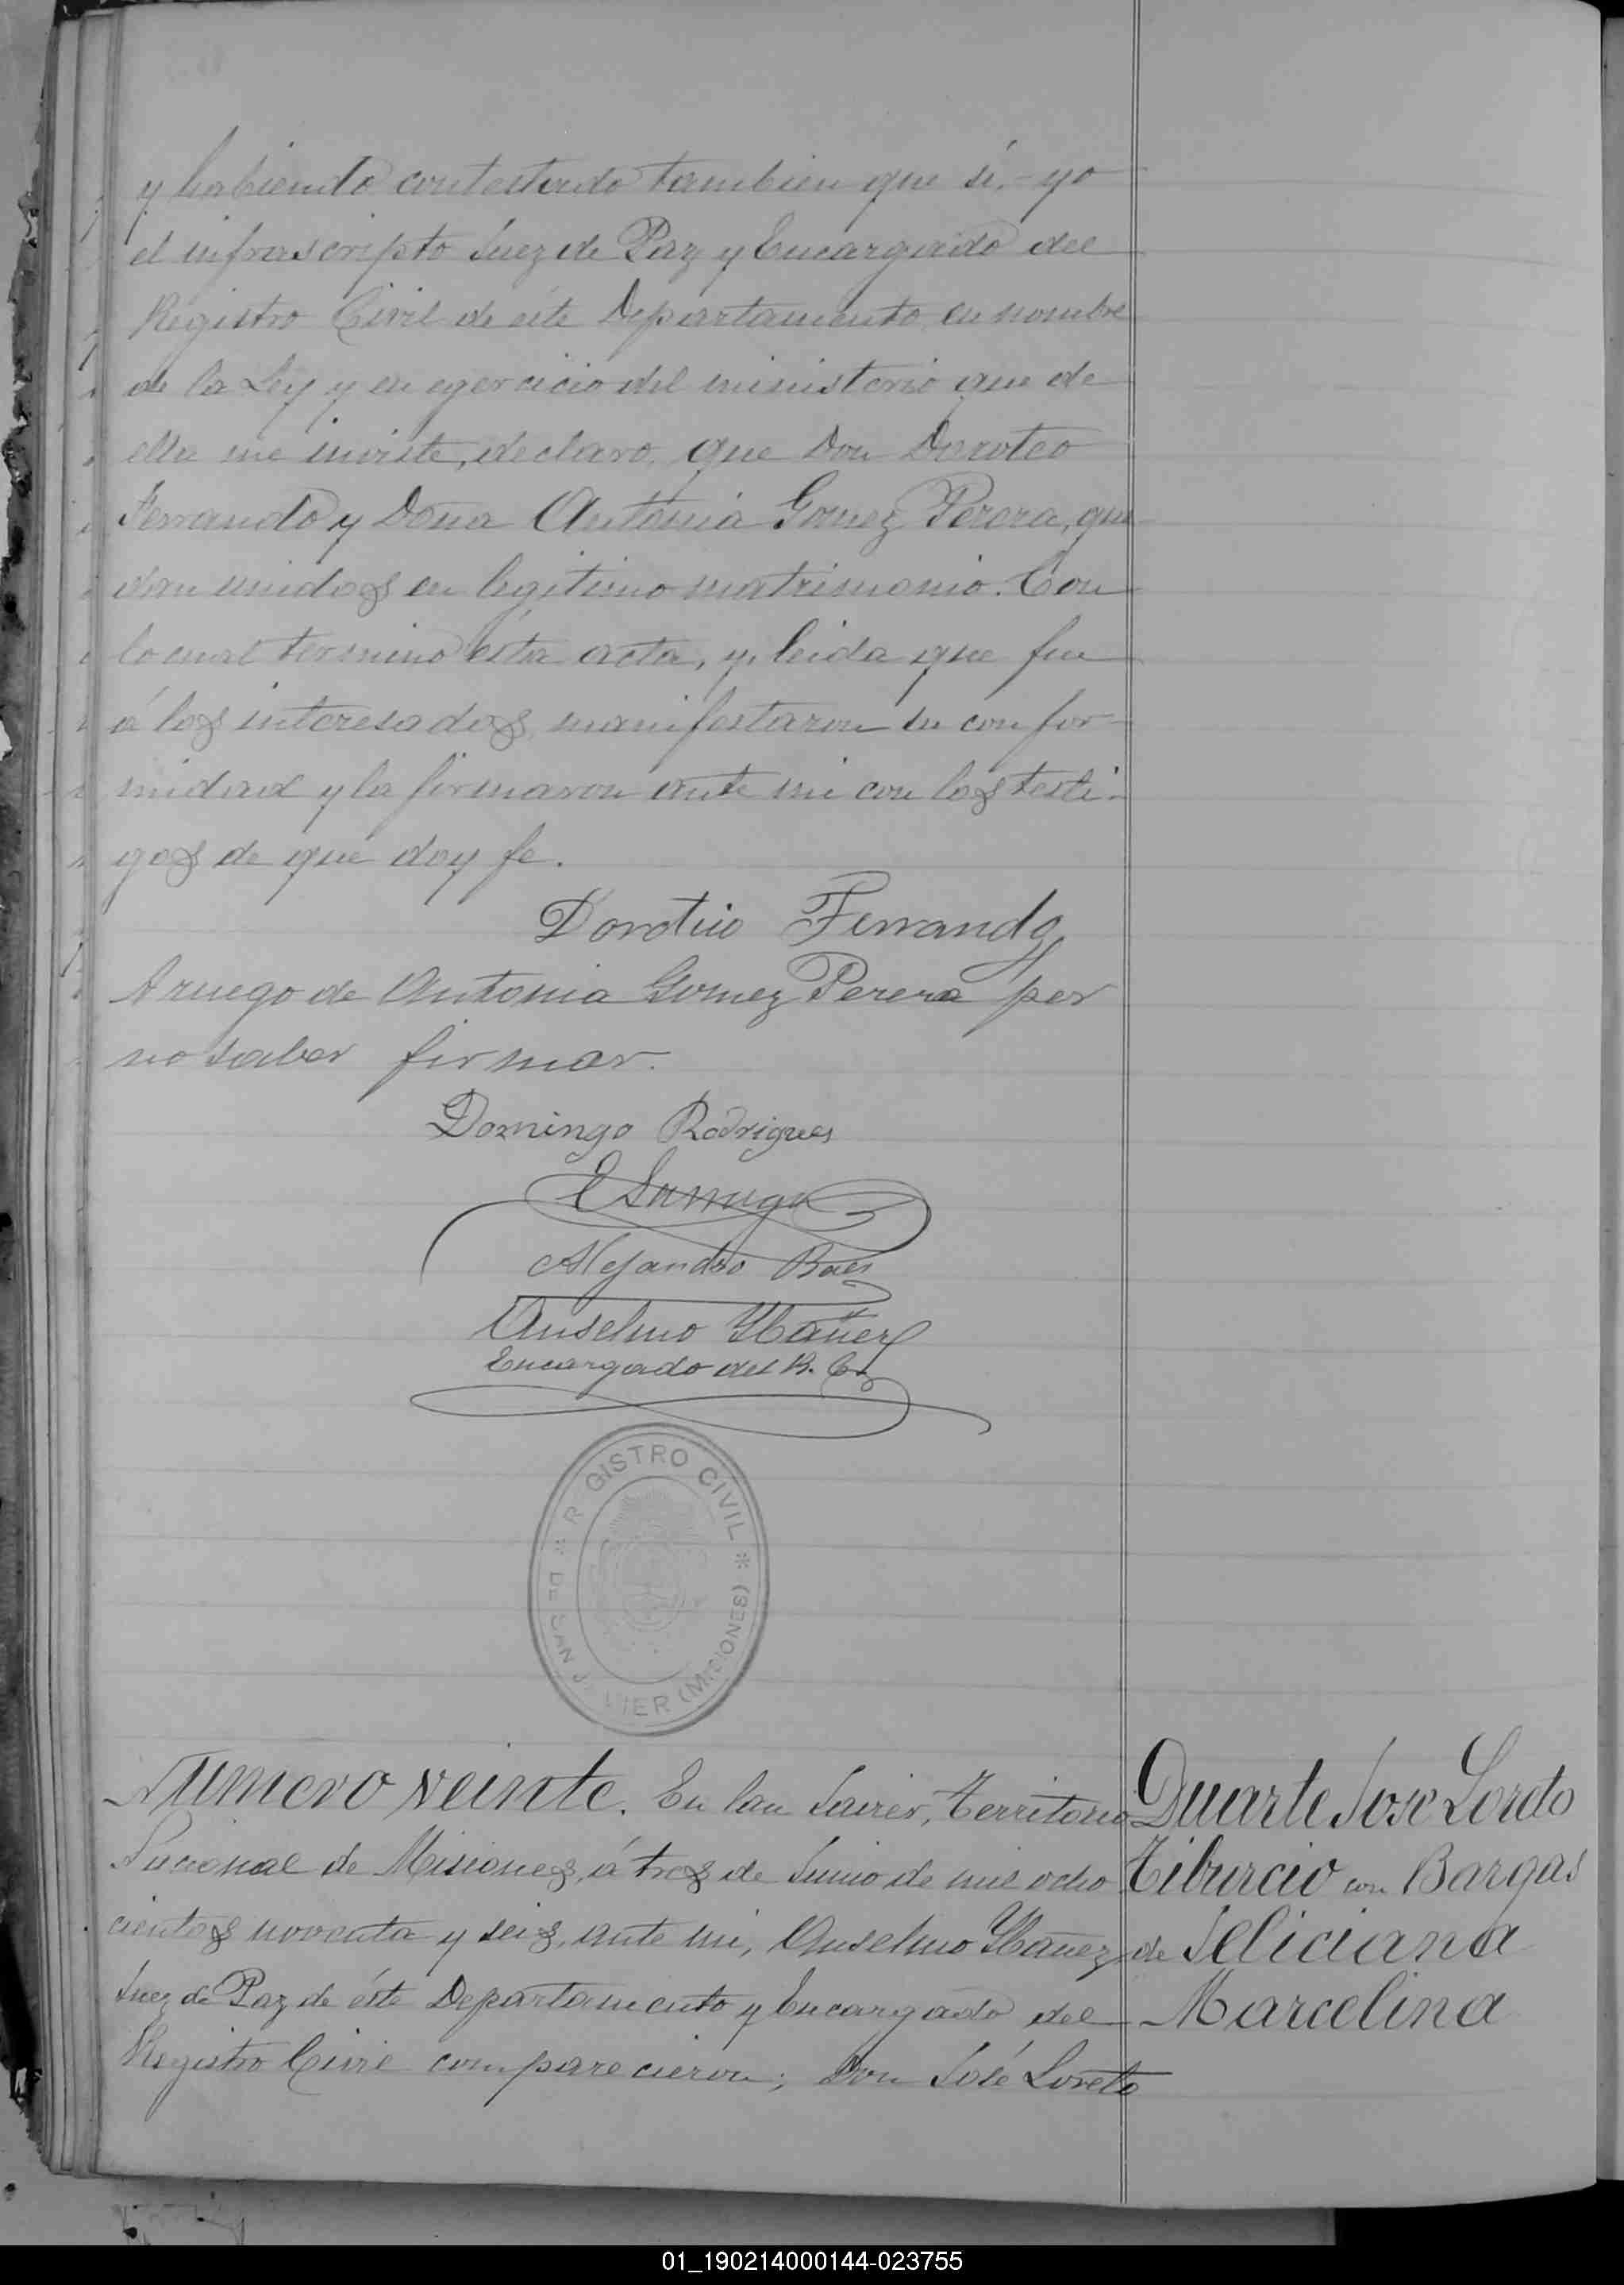 y habiendo contestado tambien que si.- yo
el infrascripto Juez de Paz y Encargado del
Registro Civil de éste Departamento en nombre
de la Ley y en egercicio del ministerio que de
ella me inviste, declaro, que Don Doroteo
Ferrando y Doña Antonia Gomez Perera, que
dan unidos en legitimo matrimonio. Con
lo cual termino ésta acta, y leida que fue
á los interesados, manifestaron su confor-
midad y la firmaron ante mi con los testi-
gos de que doy fe.
Dorotio Ferrando
A ruego de Antonia Gomez Perera por
no saber firmar.
Domingo Rodrigues
Alejandro Baes
Anselmo Ybañez
Encargado del R. C.
R GISTRO CIVIL * DE SAN J VIER (MISIONES) *
Numero veinte. En San Javier, Territorio
Nacional de Misiones, á tres de Junio de mil ocho
cientos noventa y seis, ante mi, Anselmo Ybañez
Juez de Paz de éste Departamento y Encargado del
Registro Civil comparecieron; Don José Loreto
Duarte Jose Loreto
Tiburcio con Bargas
de Feliciana
Marcelina
01_190214000144-023755